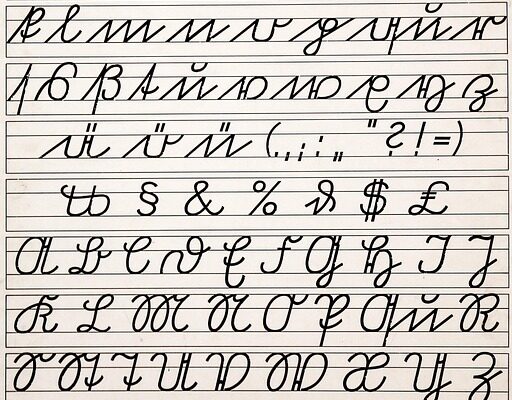 k l m n o p qu r
ſ s ß t u v w x y z
ä ö ü (.,;:„“?!=)
℔ § & % ₰ $ £
A B C D E F G H I J
K L M N O P Qu R
S St T U V W X Y Z